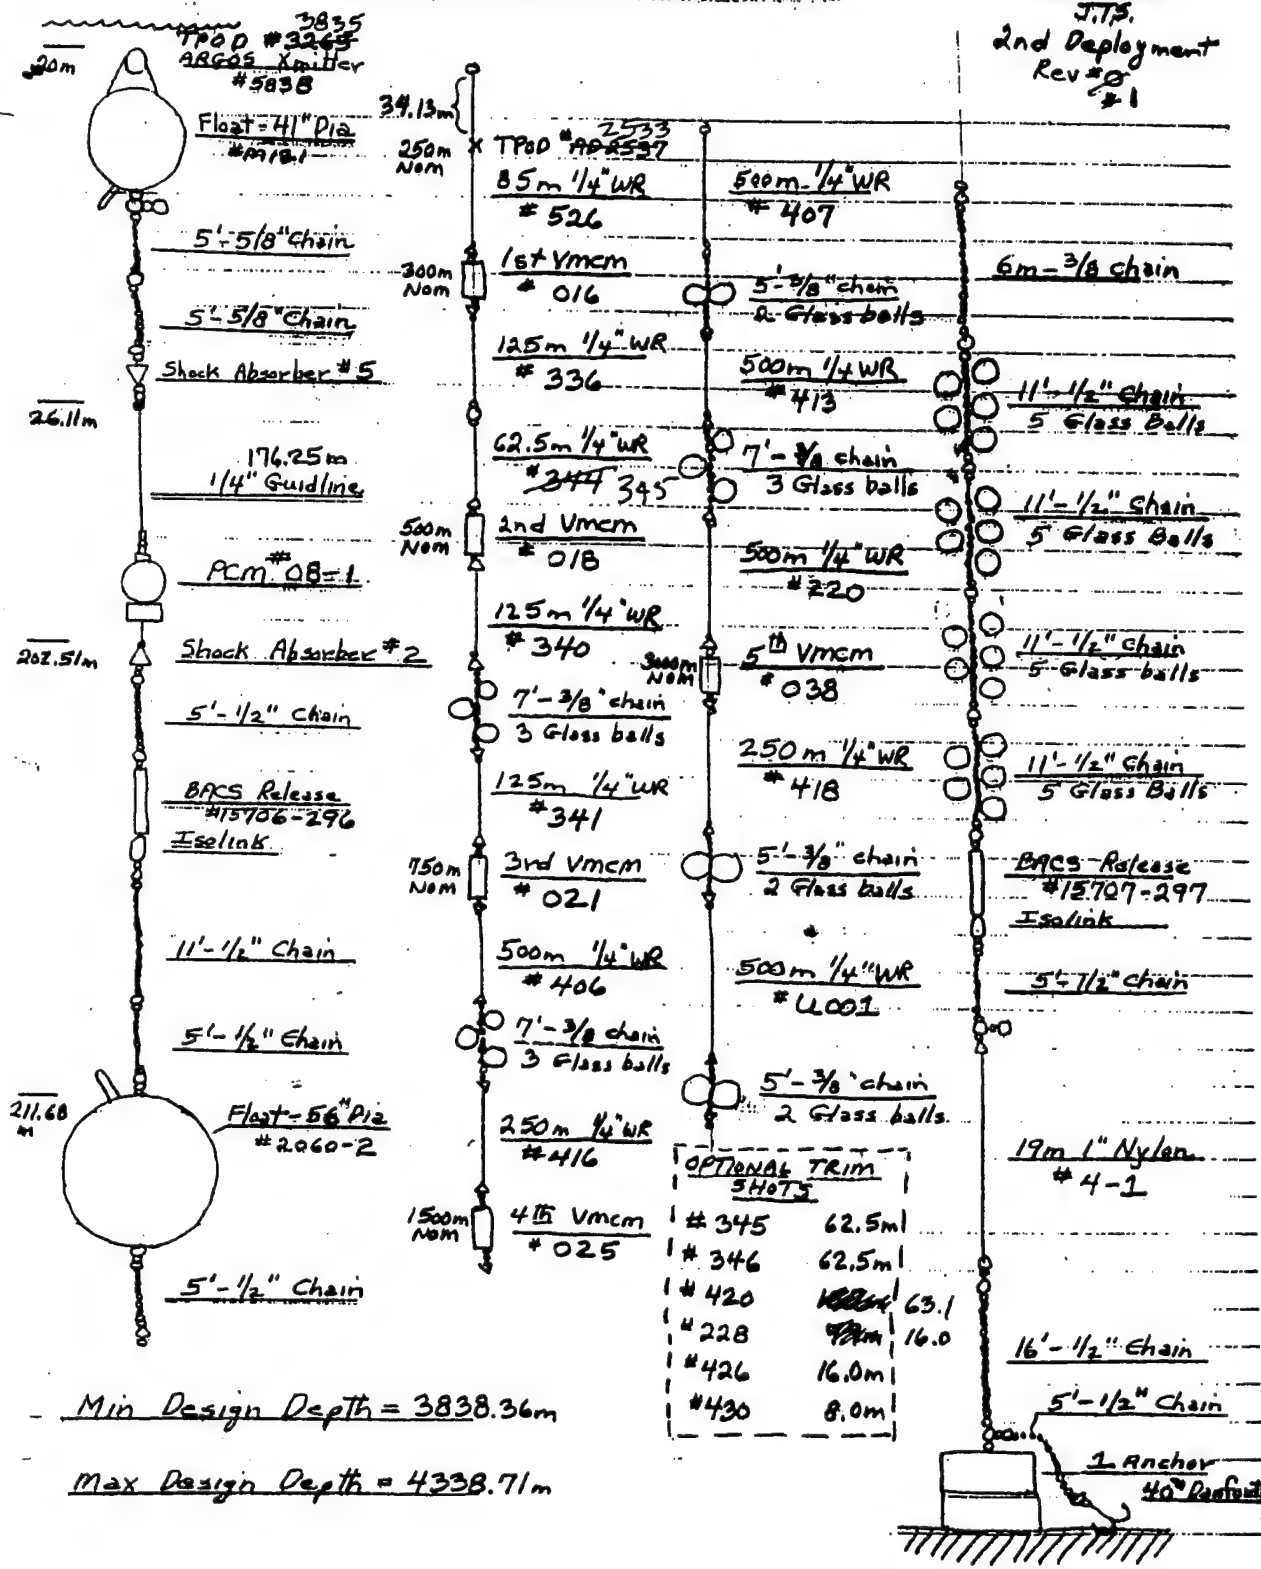 J.T.S.
2nd Deployment
Rev #0
#1
3835
TPOD #3265
ARGOS Xmitter
#5838
20m
Float-41" Dia
5'-5/8" Chain
5'-5/8" Chain
Shock Absorber #5
26.11m
176.25m
1/4" Guidline
PCM #08-1
202.51m
Shock Absorber #2
5'-1/2" Chain
BACS Release
#15706-296
Isolink
11'-1/2" Chain
5'-1/2" Chain
211.68
m
Float-56" Dia
#2060-2
5'-1/2" Chain
Min Design Depth = 3838.36m
Max Design Depth = 4338.71m
34.13m
2533
250m
Nom
TPOD #AD2537
85m 1/4" WR
#526
300m
Nom
1st Vmcm
#016
125m 1/4" WR
#336
62.5m 1/4" WR
#344 345
500m
Nom
2nd Vmcm
#018
125m 1/4" WR
#340
7'-3/8" chain
3 Glass balls
125m 1/4" WR
#341
750m
Nom
3rd Vmcm
#021
500m 1/4" WR
#406
7'-3/8 chain
3 Glass balls
250m 1/4" WR
#416
1500m
Nom
4th Vmcm
#025
500m 1/4" WR
#407
5'-3/8" chain
2 Glass balls
500m 1/4 WR
#413
7'-3/8 chain
3 Glass balls
500m 1/4" WR
#220
3000m
NOM
5th Vmcm
#038
250m 1/4" WR
#418
5'-3/8" chain
2 Glass balls
500m 1/4" WR
#U001
5'-3/8" chain
2 Glass balls
OPTIONAL TRIM
SHOTS
#345 62.5m
#346 62.5m
#420 63.1
#228 16.0
#426 16.0m
#430 8.0m
6m-3/8 Chain
11'-1/2" Chain
5 Glass Balls
11'-1/2" Chain
5 Glass Balls
11'-1/2" Chain
5 Glass balls
11'-1/2" Chain
5 Glass Balls
BACS Release
#15707-297
Isolink
5'-1/2" Chain
19m 1" Nylon
#4-1
16'-1/2" Chain
5'-1/2" Chain
1 Anchor